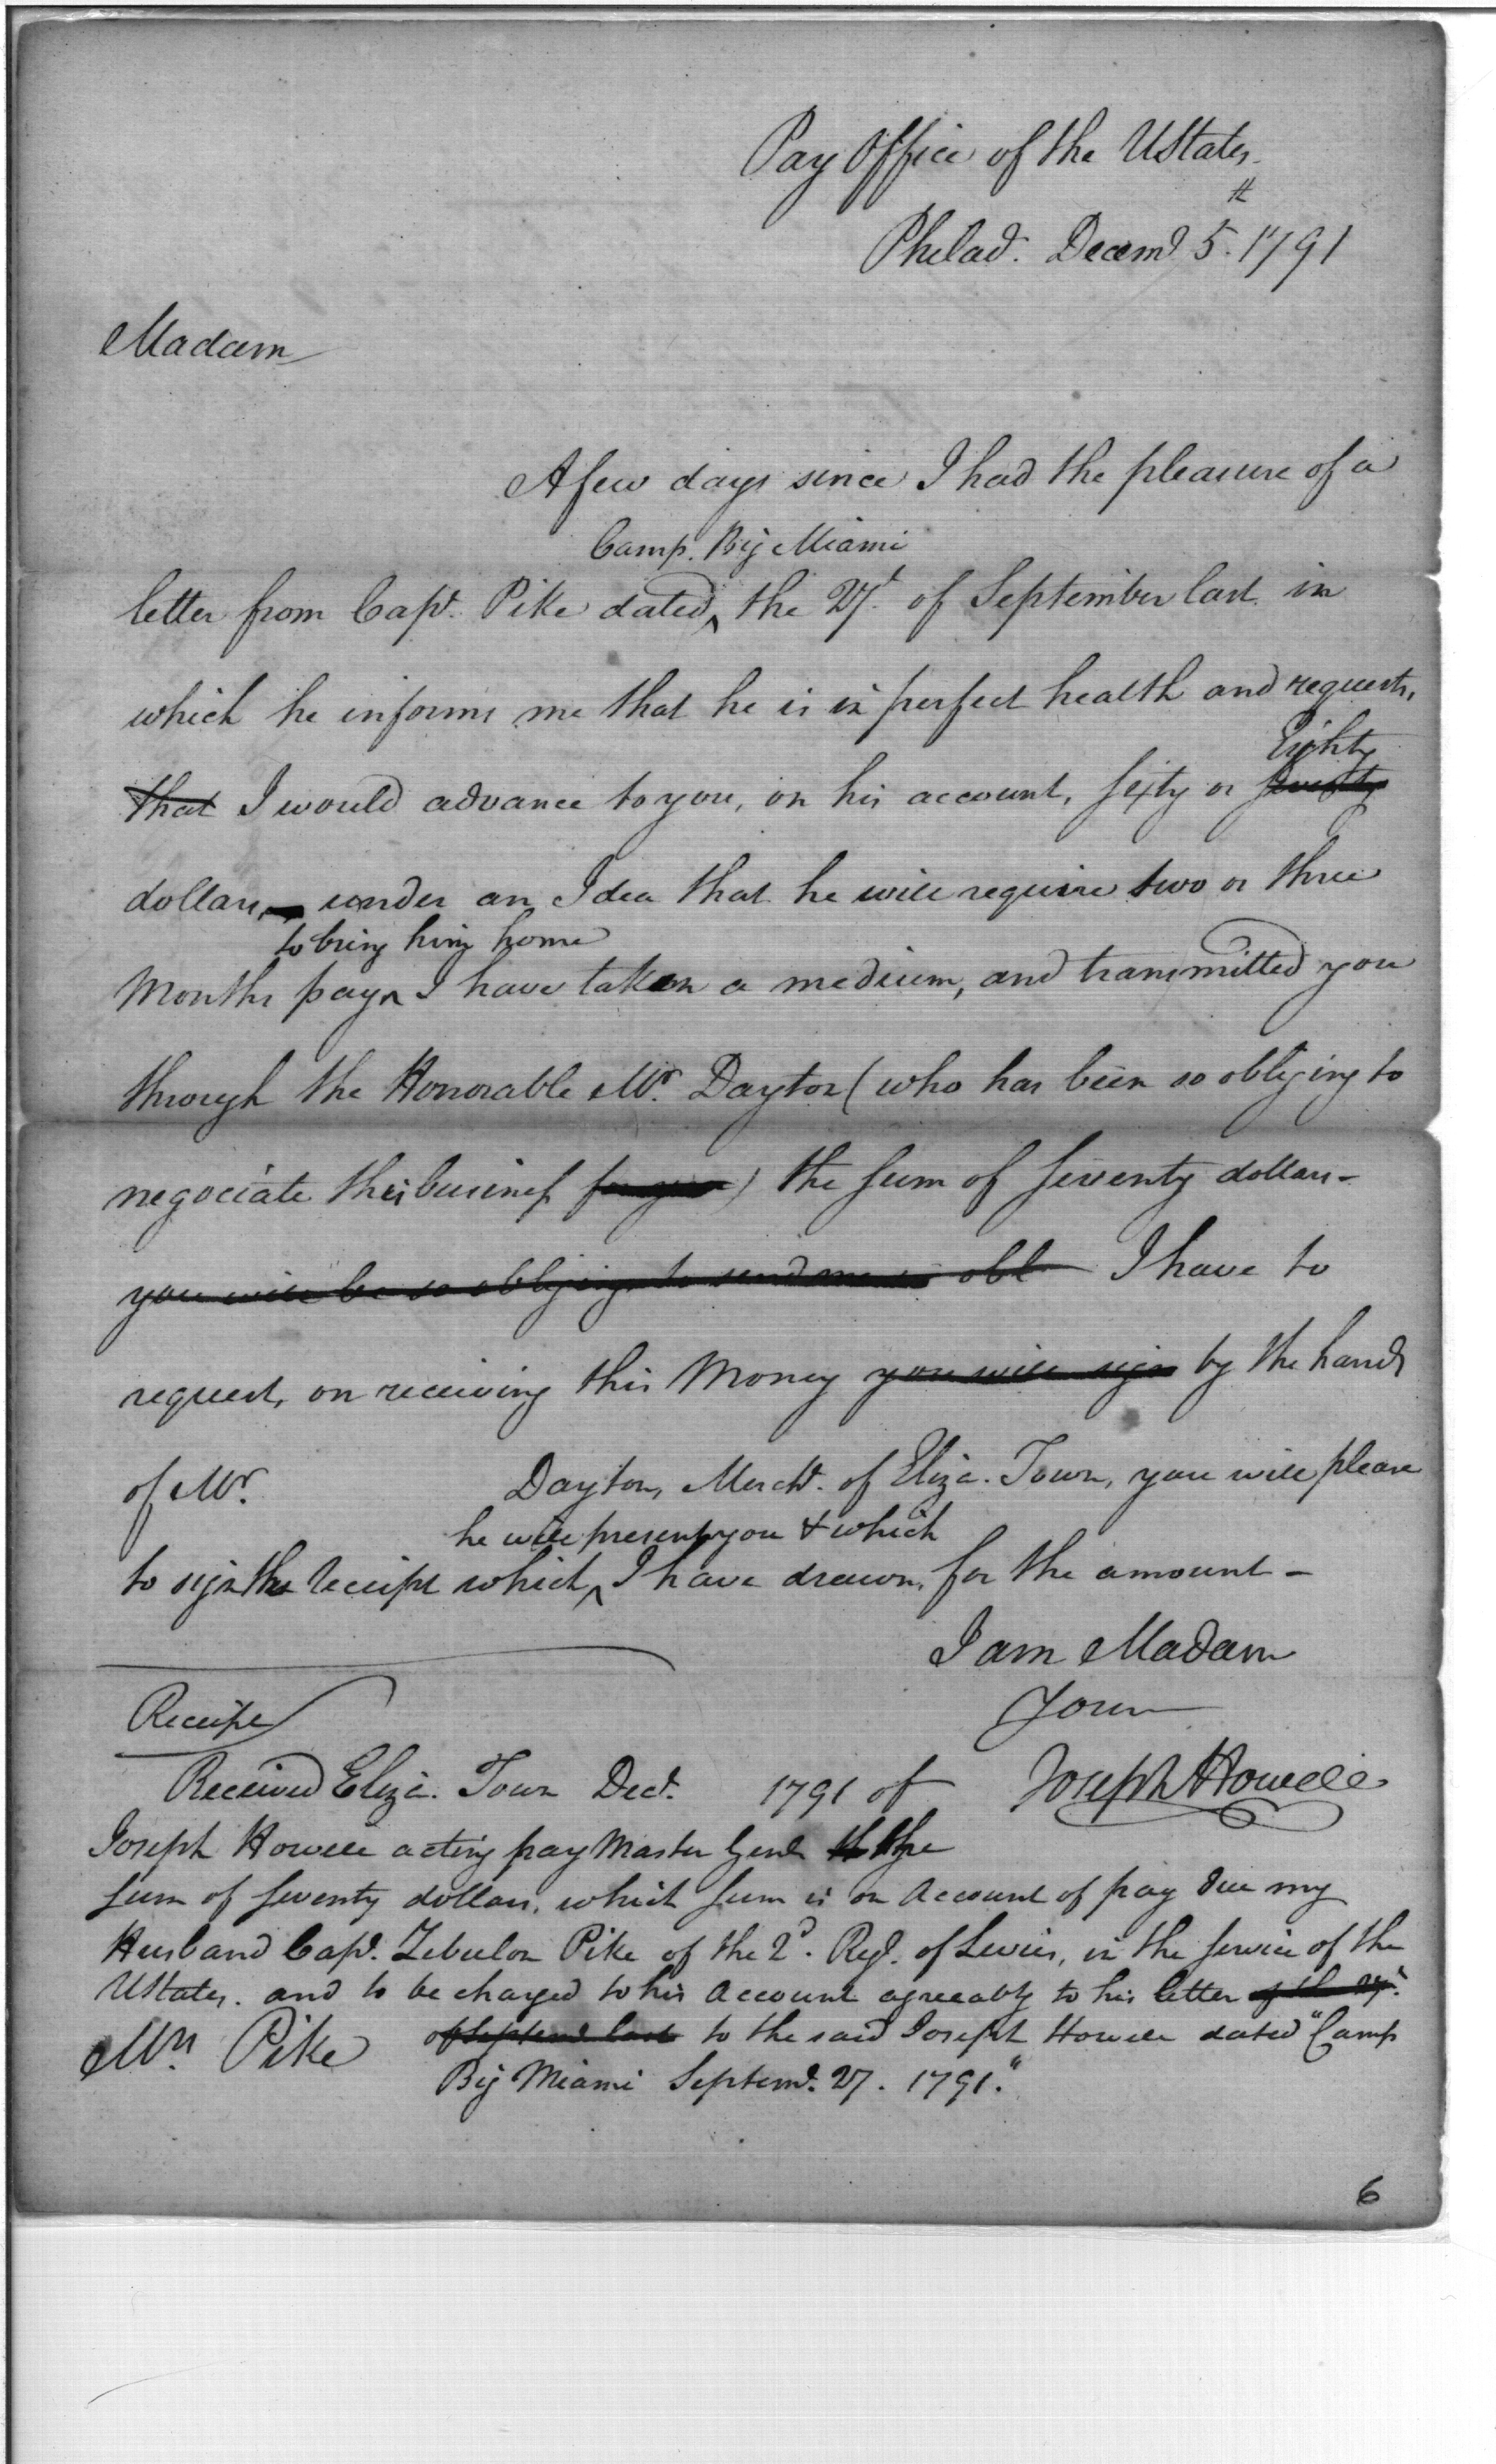 Pay Office of the UStates
th
Philad. Decemr 5. 1791
Madam
A few days since I had the pleasure of a
Camp. Big Miami
letter from Capt. Pike dated ^ the 27t. of September last in
which he informs me that he is in perfect health and requests,
Eighty
that I would advance to you, on his account, sixty or seventy
dollars, under an Idea that he will require two or three
to bring him home
Months pay ^ I have taken a medium, and transmitted you
through the Honorable Mr. Dayton (who has been so obliging to
negociate this business for you) the sum of seventy dollars -
you will be so obliging to send me obl I have to
request, on receiving this Money you will sign by the hands
of Mr. Dayton, Mercht. of Eliza. Town, you will please
he will present you & which
to sign the receipt which ^ I have drawn, for the amount -
I am Madam
Your
Receipt
Received Eliza. Town Decr. 1791 of
Joseph Howell
Joseph Howell acting pay Master Genl the
sum of seventy dollars, which sum is on Account of pay due my
Husband Capt. Zebulon Pike of the 2d. Regt. of Levies, in the service of the
UStates. and to be charged to his Account agreeably to his letter of the 27t.
of Septemr last to the said Joseph Howell dated "Camp
Mrs Pike
Big Miami Septemr. 27. 1791."
6